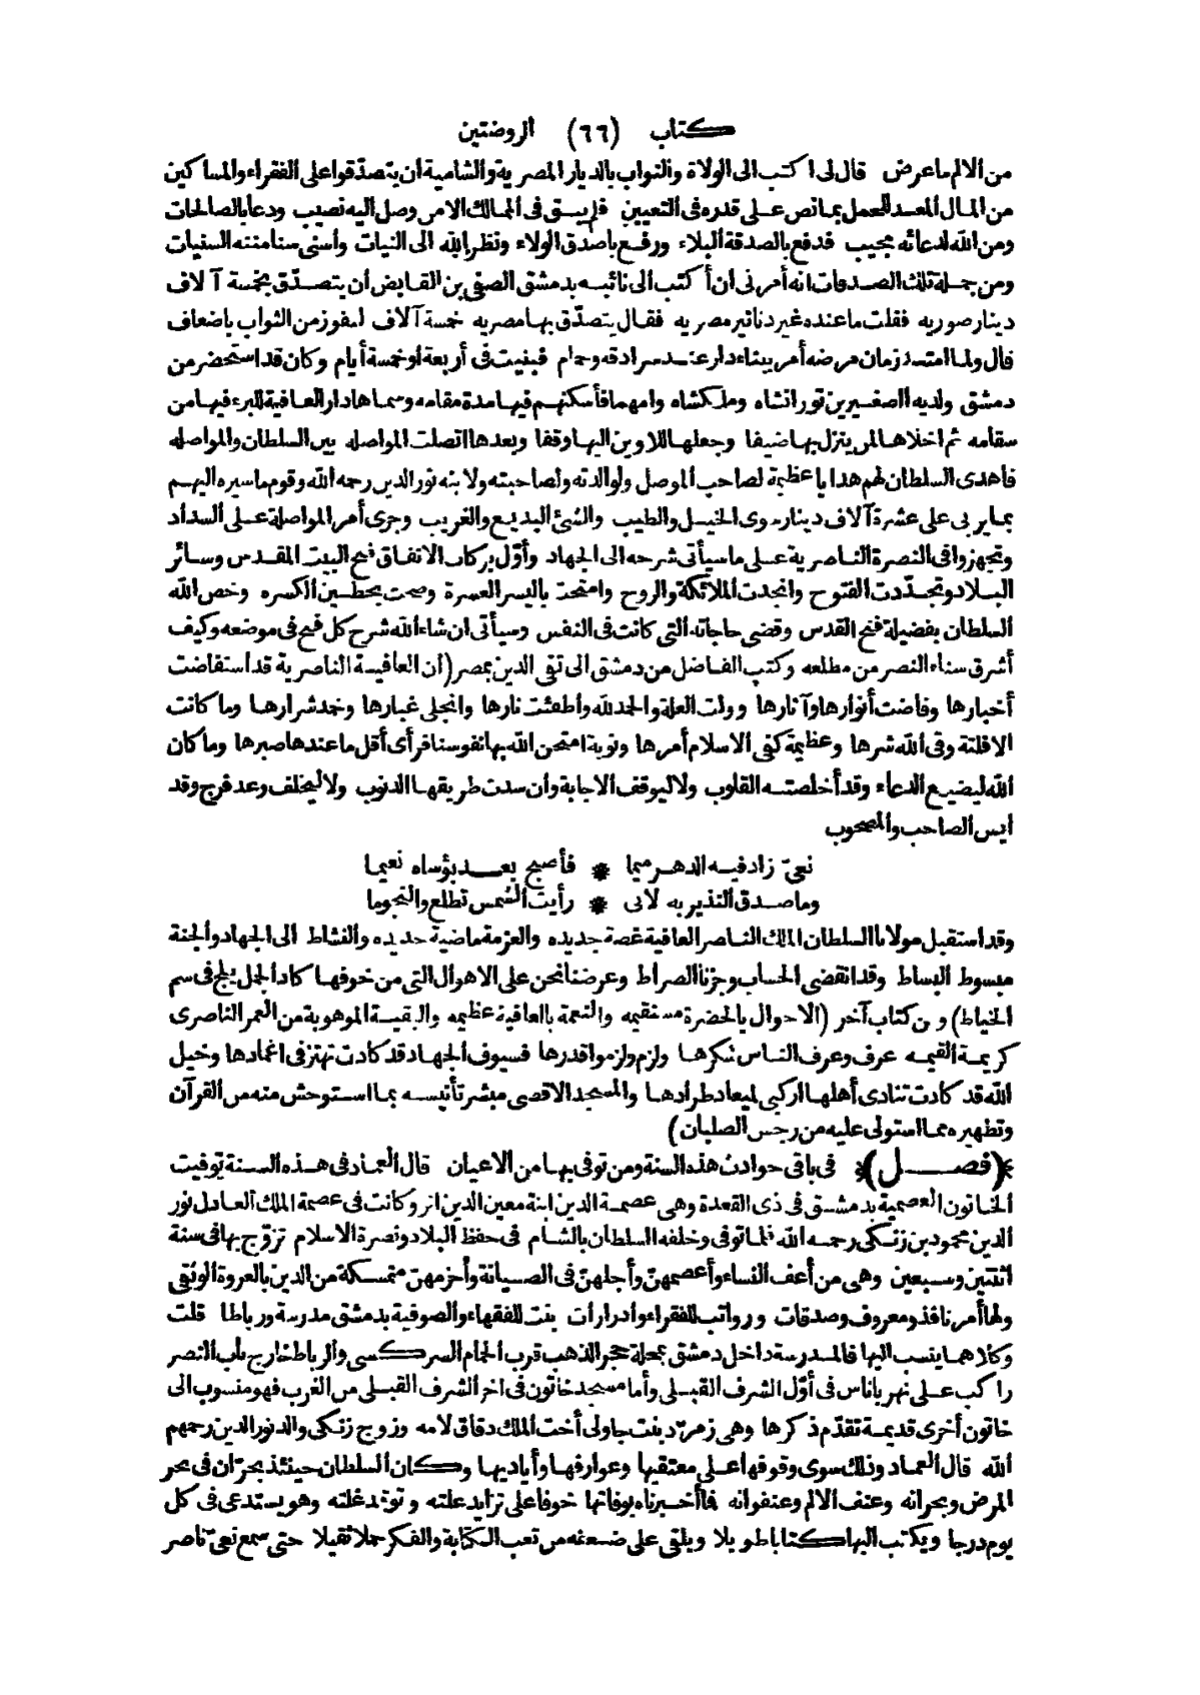 كتاب (٦٦) الروضتين
من الالم ما عرض قال لى اكتب الى الولاة والنواب بالديار المصرية والشامية أن يتصدّقوا على الفقراء والمساكين
من المال المعد للحمل بما نص على قدره فى التعيين فلم يبق فى الممالك الا من وصل اليه نصيب ودعا بالصالحات
ومن الله لدعائه مجيب فدفع بالصدقة البلاء ورفع بأصدق الولاء ونظر الله الى النيات وأسنى سنا منته السنيات
ومن جملة تلك الصدقات انه أمرنى ان أكتب الى نائبه بدمشق الصفى بن القابض أن يتصدّق بخمسة آلاف
دينار صوريه فقلت ما عنده غير دنانير مصريه فقال يتصدّق بها مصريه خمسة آلاف لنفوز من الثواب باضعاف
قال ولما امتد زمان مرضه أمر ببناء دار عند سرادقه وحمام فبنيت فى أربعة أو خمسة أيام وكان قد استحضر من
دمشق ولديه الصغيرين تورانشاه وملكشاه وامهما فأسكنهم فيها مدة مقامه وسماها دار العافية للبرء فيها من
سقامه ثم اخلاها لمن ينزل بها ضيفا وجعلها للاوين اليها وقفا وبعدها اتصلت المواصله بين السلطان والمواصله
فاهدى السلطان لهم هدايا عظيمة لصاحب الموصل ولوالدته ولصاحبته ولابنه نور الدين رحمه الله وقوم ما سيره اليهم
بما يربى على عشرة آلاف دينار سوى الخيل والطيب والشئ البديع والغريب وجرى أمر المواصلة على السداد
وتجهزوا فى النصرة الناصرية على ما سيأتى شرحه الى الجهاد وأوّل بركات الاتفاق فتح البيت المقدس وسائر
البلاد وتجدّدت الفتوح وانجدت الملائكة والروح وامتحت باليسر العسرة وصحت بحطين الكسره وخص الله
السلطان بفضيلة فتح القدس وقضى حاجاته التى كانت فى النفس وسيأتى ان شاء الله شرح كل فتح فى موضعه وكيف
أشرق سناء النصر من مطلعه وكتب الفاضل من دمشق الى تقى الدين بمصر (ان العافية الناصرية قد استفاضت
أخبارها وفاضت أنوارها وآثارها وولت العلة والحمد لله وأطفئت نارها وانجلى غبارها وخمد شرارها وما كانت
الا فلتة وقى الله شرها وعظيمة كفى الاسلام أمرها ونوبة امتحن الله بها نفوسنا فرأى أقل ما عندها صبرها وما كان
الله ليضيع الدعاء وقد أخلصته القلوب ولا ليوقف الاجابة وان سدت طريقها الذنوب ولا ليخلف وعد فرج وقد
ايس الصاحب والمصحوب
نعىّ زاد فيه الدهر ميما * فأصبح بعد بؤساه نعيما
وما صدق النذير به لانى * رأيت الشمس تطلع والنجوما
وقد استقبل مولانا السلطان الملك الناصر العافية غضة جديده والعزمة ماضية حديده والنشاط الى الجهاد والجنة
مبسوط البساط وقد انقضى الحساب وجزنا الصراط وعرضنا نحن على الاهوال التى من خوفها كاد الجمل يلج فى سم
الخياط) ومن كتاب آخر (الاحوال بالحضرة مستقيمه والنعمة بالعافية عظيمه والبقية الموهوبة من العمر الناصرى
كريمة القيمه عرف وعرف الناس شكرها ولزم ولزموا قدرها فسيوف الجهاد قد كادت تهتز فى اغمادها وخيل
الله قد كادت تنادى أهلها اركبى لميعاد طرادها والمسجد الاقصى مبشر تأنيسه بما استوحش منه من القرآن
وتطهيره مما استولى عليه من رجس الصلبان)
*(فصل)* فى باقى حوادث هذه السنة ومن توفى بها من الاعيان قال العماد فى هذه السنة توفيت
الخاتون العصمية بدمشق فى ذى القعدة وهى عصمة الدين ابنة معين الدين انر وكانت فى عصمة الملك العادل نور
الدين محمود بن زنكى رحمه الله فلما توفى وخلفه السلطان بالشام فى حفظ البلاد ونصرة الاسلام تزوّج بها فى سنة
اثنتين وسبعين وهى من أعف النساء وأعصمهنّ وأجلهنّ فى الصيانة وأحزمهنّ متمسكة من الدين بالعروة الوثقى
ولها أمر نافذ ومعروف وصدقات ورواتب للفقراء وادرارات بنت للفقهاء والصوفية بدمشق مدرسة ورباطا قلت
وكلاهما ينسب اليها فالمدرسة داخل دمشق بمحلة حجر الذهب قرب الحمام السركسى والرباط خارج باب النصر
راكب على نهر باناس فى أوّل الشرف القبلى وأما مسجد خاتون فى اخر الشرف القبلى من الغرب فهو منسوب الى
خاتون أخرى قديمة تقدّم ذكرها وهى زمرّد بنت جاولى أخت الملك دقاق لامه وزوج زنكى والد نور الدين رحمهم
الله قال العماد وذلك سوى وقوفها على معتقيها وعوارفها وأياديها وكان السلطان حينئذ بحرّان فى بحر
المرض وبحرانه وعنف الالم وعنفوانه فما أخبرناه بوفاتها خوفا على تزايد علته وتوقد غلته وهو يستدعى فى كل
يوم درجا ويكتب اليها كتابا طويلا ويلقى على ضعفه من تعب الكتابة والفكر حملا ثقيلا حتى سمع نعىّ ناصر